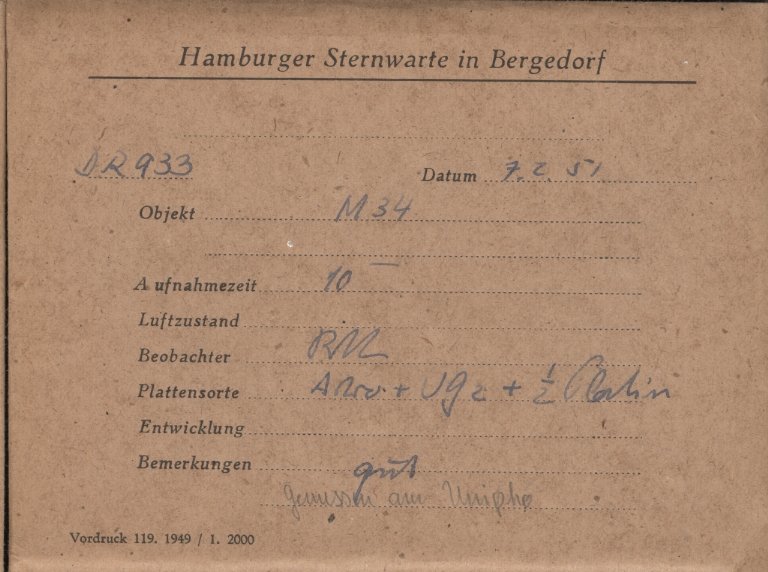 Hamburger Sternwarte in Bergedorf
DR 933 Datum 7. 2. 51
Objekt M 34
Aufnahmezeit 10
Luftzustand
Beobachter
Plattensorte + UG2 + 1/2 Platin
Entwicklung
Bemerkungen gut
Gemessen am
Vordruck 119. 1949 / 1. 2000